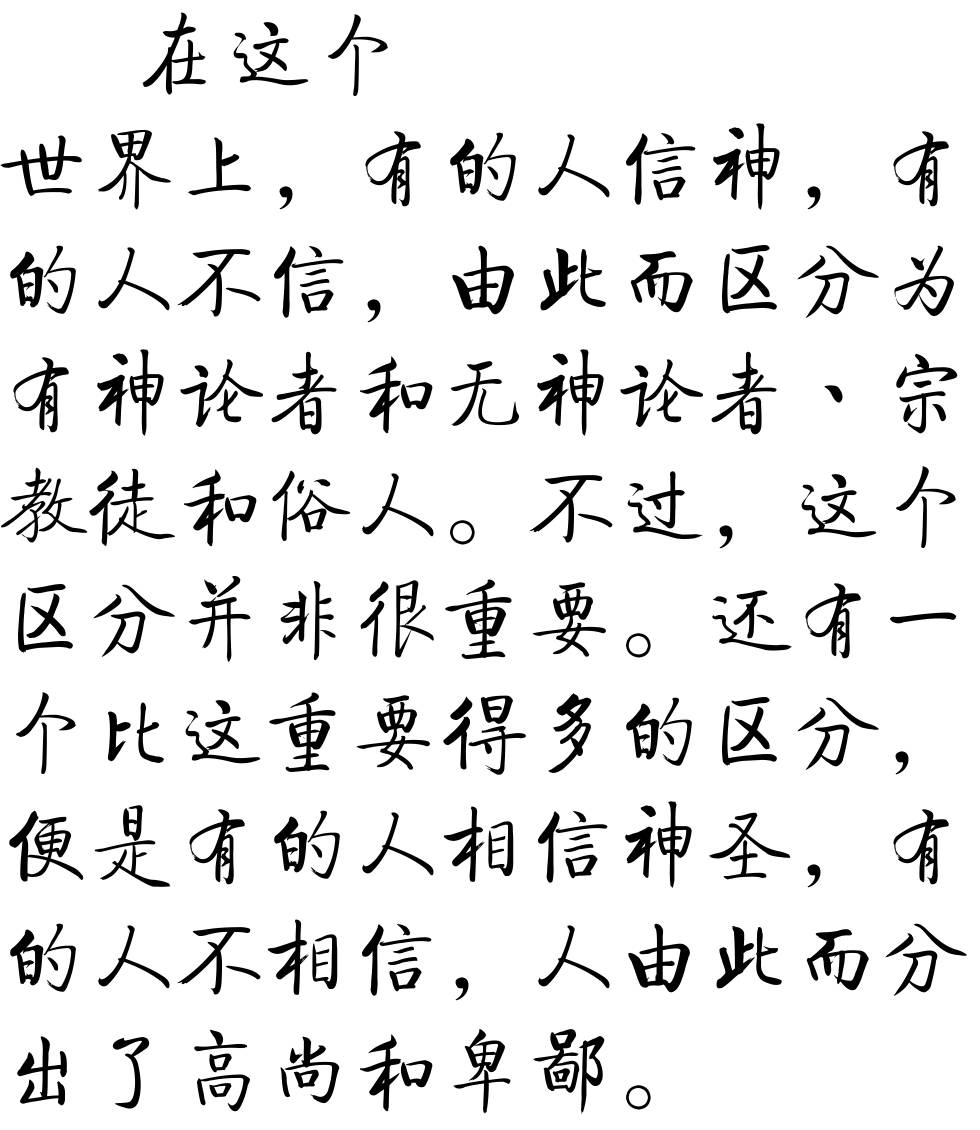 在这个
世界上，有的人信神，有
的人不信，由此而区分为
有神论者和无神论者、宗
教徒和俗人。不过，这个
区分并非很重要。还有一
个比这重要得多的区分，
便是有的人相信神圣，有
的人不相信，人由此而分
出了高尚和卑鄙。